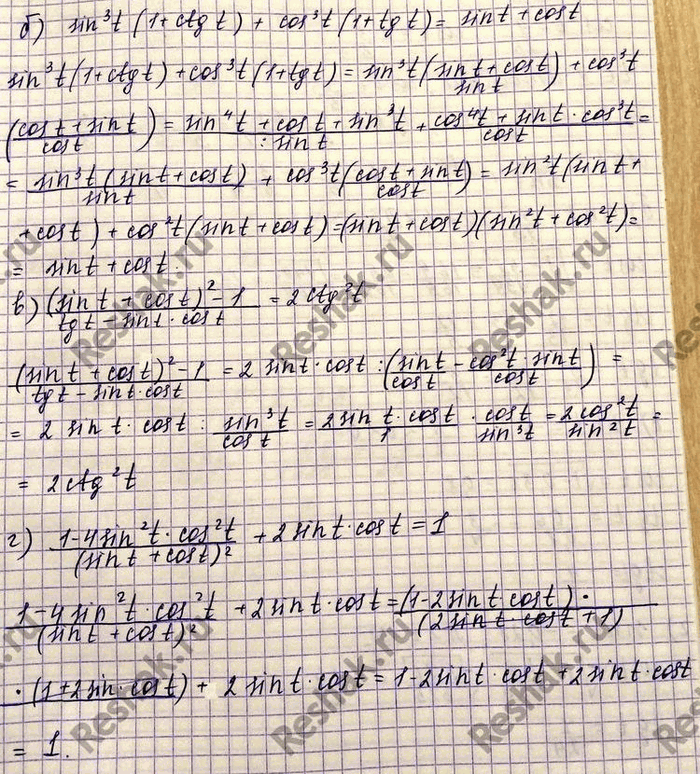 б) sin³t (1+ctg t) + cos³t (1+tg t) = sin t + cos t
sin³t (1+ctg t) + cos³t (1+tg t) = sin³t ((sin t + cos t)/sin t) + cos³t
((cos t + sin t)/cos t) = (sin⁴t + cos t + sin³t)/(: sin t) + (cos⁴t + sin t · cos³t)/cos t =
= (sin³t (sin t + cos t))/sin t + cos³t ((cos t + sin t)/cos t) = sin²t (sin t +
+ cos t) + cos²t (sin t + cos t) = (sin t + cos t)(sin²t + cos²t) =
= sin t + cos t.
в) ((sin t + cos t)² - 1)/(tg t - sin t · cos t) = 2 ctg²t
((sin t + cos t)² - 1)/(tg t - sin t · cos t) = 2 sin t · cos t : (sin t/cos t - (cos²t · sin t)/cos t) =
= 2 sin t · cos t : sin³t/cos t = (2 sin t · cos t)/1 · cos t/sin³t = 2cos²t/sin²t =
= 2ctg²t
г) (1-4 sin²t · cos²t)/(sin t + cos t)² + 2 sin t · cos t = 1
(1-4 sin²t · cos²t)/(sin t + cos t)² + 2 sin t · cos t = (1-2 sin t cos t) · /(2 sin t · cos t + 1)
· (1+2 sin · cos t) + 2 sin t · cos t = 1-2 sin t · cos t + 2 sin t · cos t
= 1.
Reshak.ru
Reshak.ru
Reshak.ru
Reshak.ru
Reshak.ru
Reshak.ru